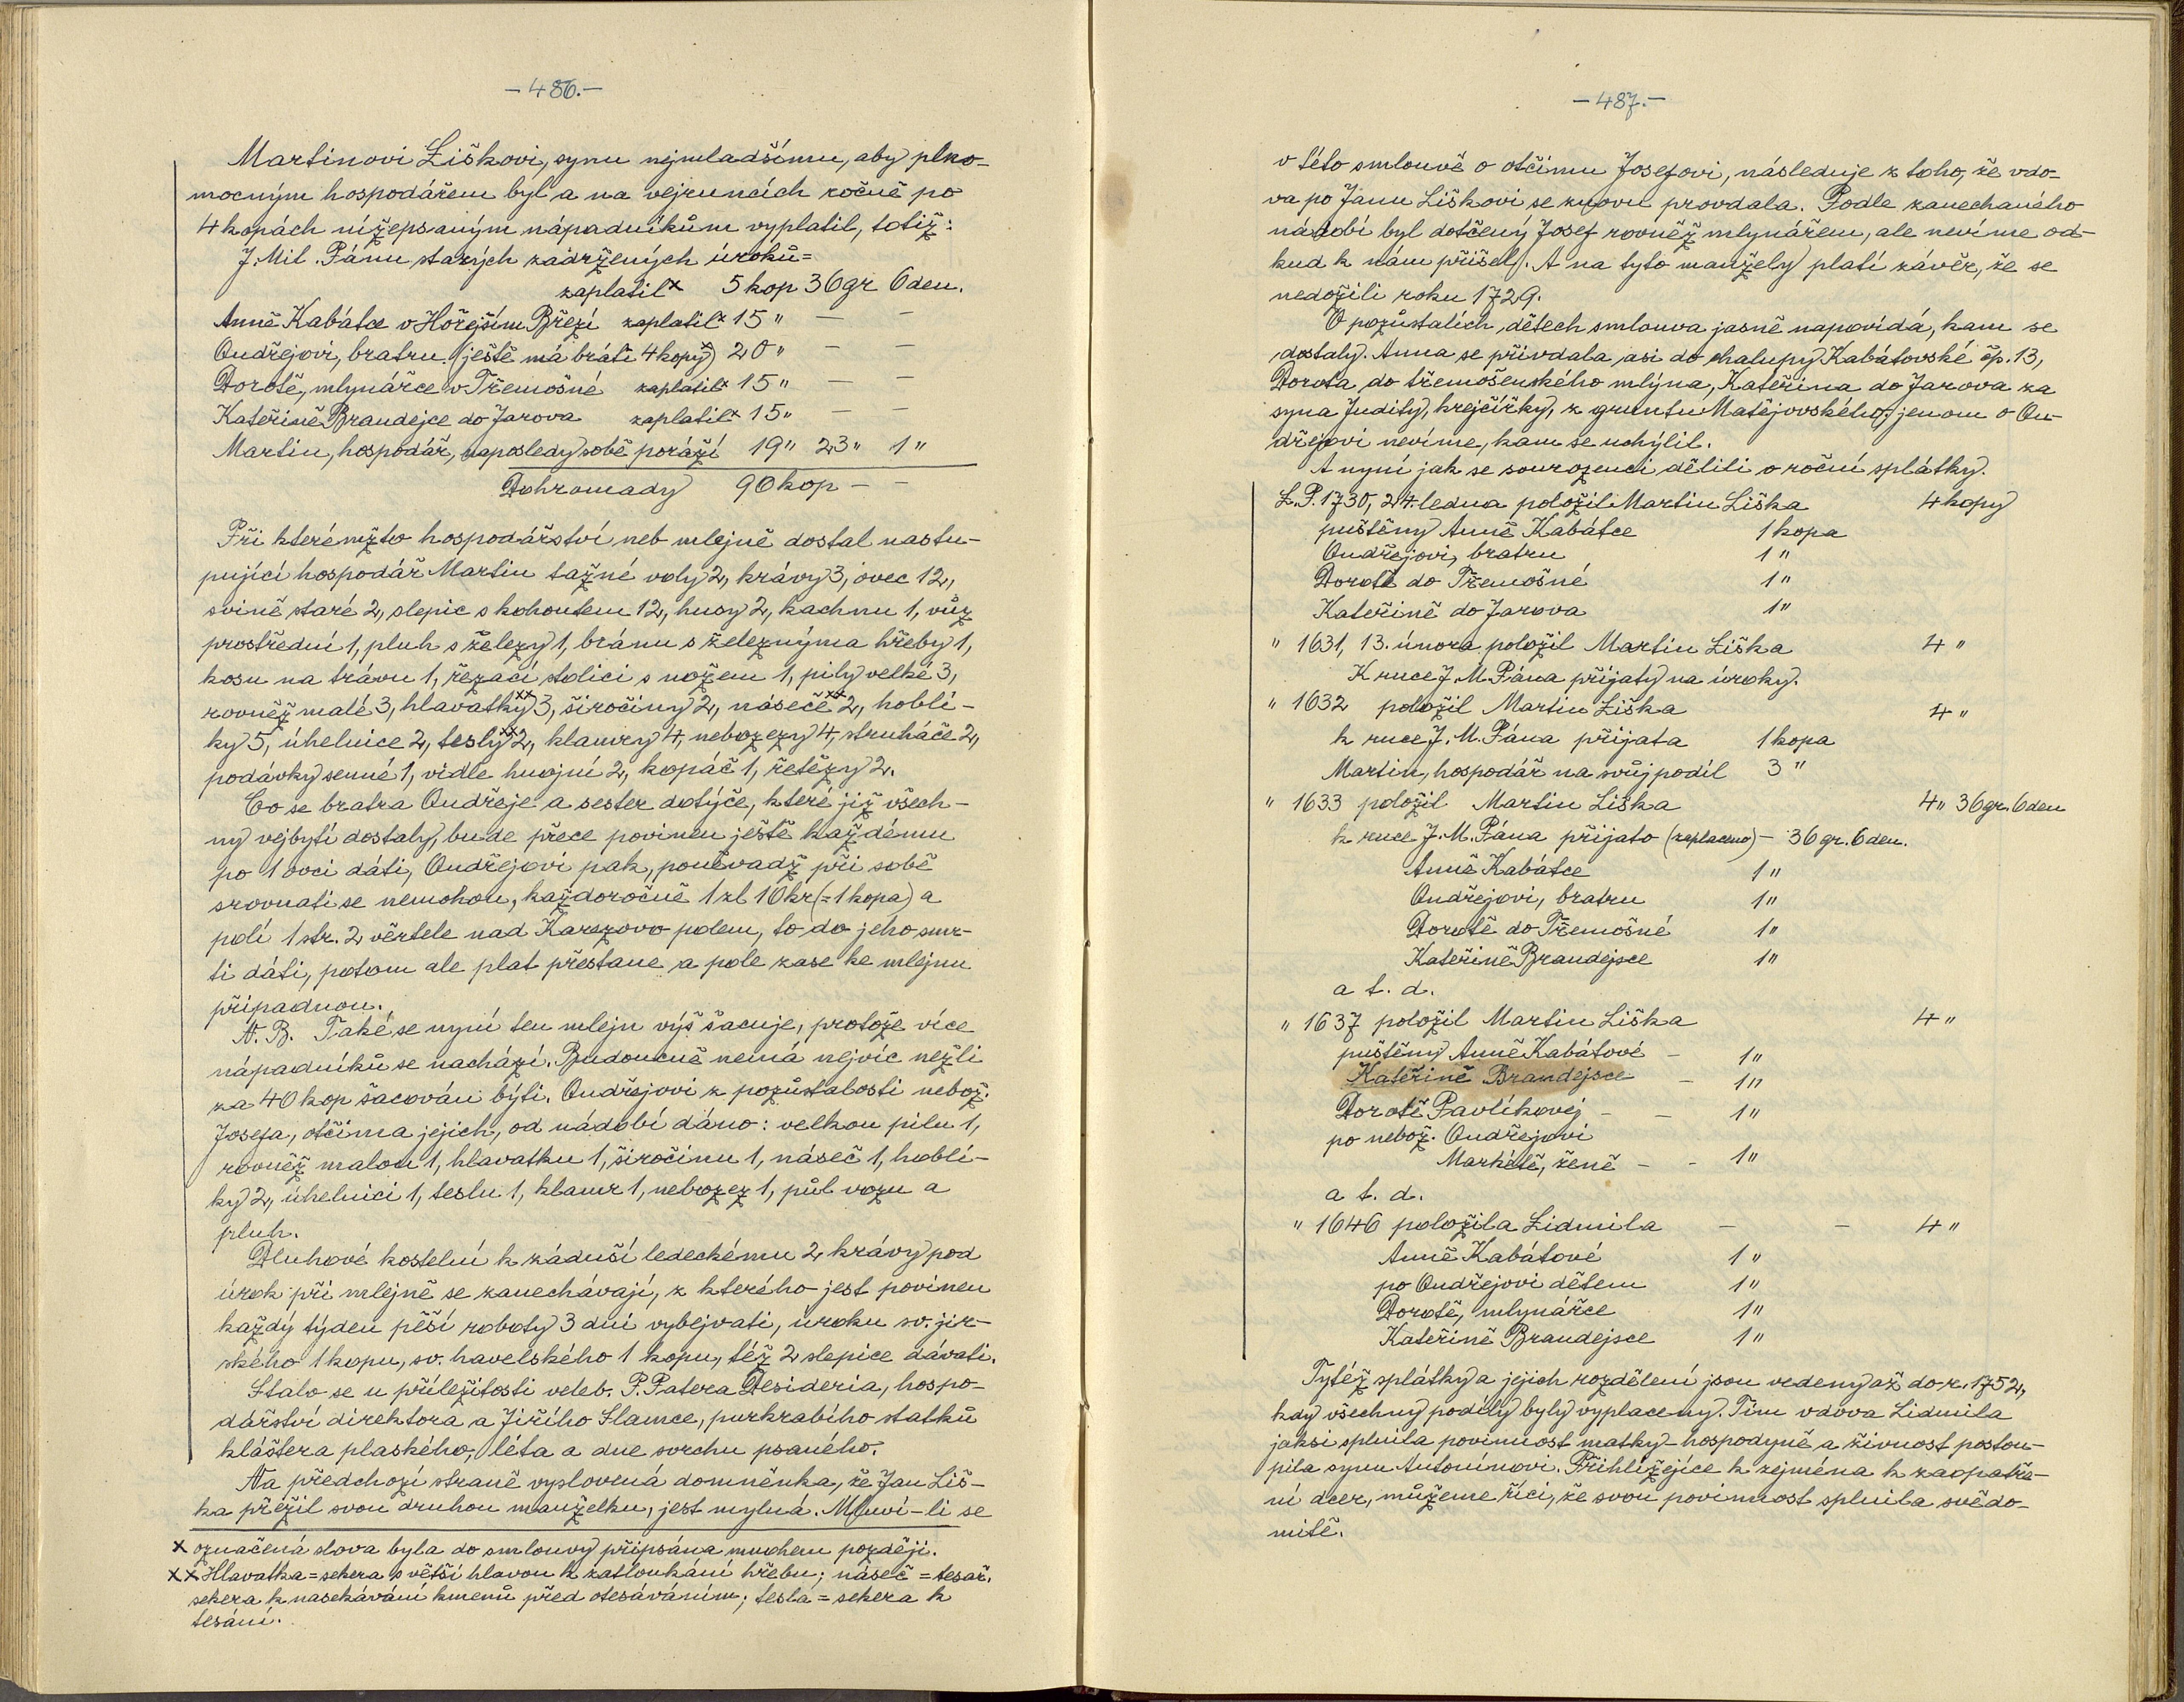 - 486. -
Martinovi Liškovi, synu nejmladšímu, aby plno-
mocným hospodářem byl a na vejruncích ročně po
4 kopách nížepsaným nápadníkům vyplatil, totiž:
J. Mil. Pánu starých zádržených úroků =
zaplatil x 5 kop 36 gr 6 den.
Anně Kabátce v Hořejším Březí zaplatil x 15 " — —
Ondřejovi, bratru (ještě má bráti 4 kopy x) 20 " — —
Dorotě, mlynářce v Třemošné zaplatil x 15 " — —
Kateřině Brandejce do Jarova zaplatil x 15 " — —
Martin, hospodář, naposledy sobě poráží 19 " 23 " 1 "
Dohromady 90 kop — —
Při kterémžto hospodářství neb mlejně dostal nastu-
pující hospodář Martin tažné voly 2, krávy 3, ovec 12,
svině staré 2, slepic s kohoutem 12, husy 2, kachnu 1, vůz
prostřední 1, pluh s železy 1, bránu s železnýma hřeby 1,
kosu na trávu 1, řezací stolici s nožem 1, pily velké 3,
rovněž malé 3, hlavatky xx 3, širočiny 2, náseče xx 2, hoblí-
ky 5, úhelnice 2, tesly xx 2, klamry 4, nebozezy 4, struháče 2,
podávky senné 1, vidle hnojní 2, kopáč 1, řetězy 2.
Co se bratra Ondřeje a sester dotýče, které již všech-
ny vejbytí dostaly, bude přece povinen ještě každému
po 1 ovci dáti, Ondřejovi pak, poněvadž při sobě
srovnati se nemohou, každoročně 1 zl 10 kr (= 1 kopa) a
polí 1 str. 2 věrtele nad Karezovo polem, to do jeho smr-
ti dáti, potom ale plat přestane a pole zase ke mlejnu
připadnou.
N. B. Také se nyní ten mlejn výš šacuje, protože více
nápadníků se nachází. Budoucně nemá nejvíc nežli
za 40 kop šacován býti. Ondřejovi z pozůstalosti nebož.
Josefa, otčíma jejich, od nádobí dáno: velkou pilu 1,
rovněž malou 1, hlavatku 1, širočinu 1, náseč 1, hoblí-
ky 2, úhelnici 1, teslu 1, klamr 1, nebozez 1, půl vozu a
pluh.
Dluhové kostelní k záduší ledeckému 2 krávy pod
úrok při mlejně se zanechávají, z kterého jest povinen
každý týden pěší roboty 3 dni vybejvati, úroku sv. jir-
ského 1 kopu, sv. havelského 1 kopu, též 2 slepice dávati.
Stalo se u příležitosti veleb. P. Patera Desideria, hospo-
dářství direktora a Jiřího Slamce, purkrabího statků
kláštera plaského, léta a dne svrchu psaného.
Na předchozí straně vyslovená domněnka, že Jan Liš-
ka přežil svou druhou manželku, jest mylná. Mluví-li se
x označená slova byla do smlouvy připsána mnohem později.
xx Hlavatka = sekera s větší hlavou k zatloukání hřebu; náseč = tesař.
sekera k nasekávání kmenů před otesáváním; tesla = sekera k
tesání.
- 487. -
v této smlouvě o otčímu Josefovi, následuje z toho, že vdo-
va po Janu Liškovi se znovu provdala. Podle zanechaného
nádobí byl dotčený Josef rovněž mlynářem, ale nevíme od-
kud k nám přišel. A na tyto manžely platí závěr, že se
nedožili roku 1729.
O pozůstalích dětech smlouva jasně napovídá, kam se
dostaly. Anna se přivdala asi do chalupy Kabátovské čp. 13,
Dorota do třemošenského mlýna, Kateřina do Jarova za
syna Judity, krejčířky, z gruntu Matějovského; jenom o On-
dřejovi nevíme, kam se uchýlil.
A nyní jak se sourozenci dělili o roční splátky.
L. P. 1730, 24. ledna položil Martin Liška 4 kopy
puštěny Anně Kabátce 1 kopa
Ondřejovi, bratru 1 "
Dorotě do Třemošné 1 "
Kateřině do Jarova 1 "
" 1631, 13. února položil Martin Liška 4 "
K ruce J. M. Pána přijaty na úroky.
" 1632 položil Martin Liška 4 "
k ruce J. M. Pána přijata 1 kopa
Martin, hospodář na svůj podíl 3 "
" 1633 položil Martin Liška 4 " 36 gr. 6 den
k ruce J. M. Pána přijato (zaplaceno) — 36 gr. 6 den.
Anně Kabátce 1 "
Ondřejovi, bratru 1 "
Dorotě do Třemošné 1 "
Kateřině Brandejsce 1 "
a t. d.
" 1637 položil Martin Liška 4 "
puštěny Anně Kabátové — 1 "
Kateřině Brandejsce — 1 "
Dorotě Pavlíkovej — — 1 "
po nebož. Ondřejovi
Markétě, ženě — - 1 "
a t. d.
" 1646 položila Lidmila — — 4 "
Anně Kabátové 1 "
po Ondřejovi dětem 1 "
Dorotě, mlynářce 1 "
Kateřině Brandejsce 1 "
Tytéž splátky a jejich rozdělení jsou vedeny až do r. 1752,
kdy všechny podíly byly vyplaceny. Tím vdova Lidmila
jaksi splnila povinnost matky-hospodyně a živnost postou-
pila synu Antonínovi. Přihlížejíce k zejména k zaopatře-
ní dcer, můžeme říci, že svou povinnost splnila svědo-
mitě.